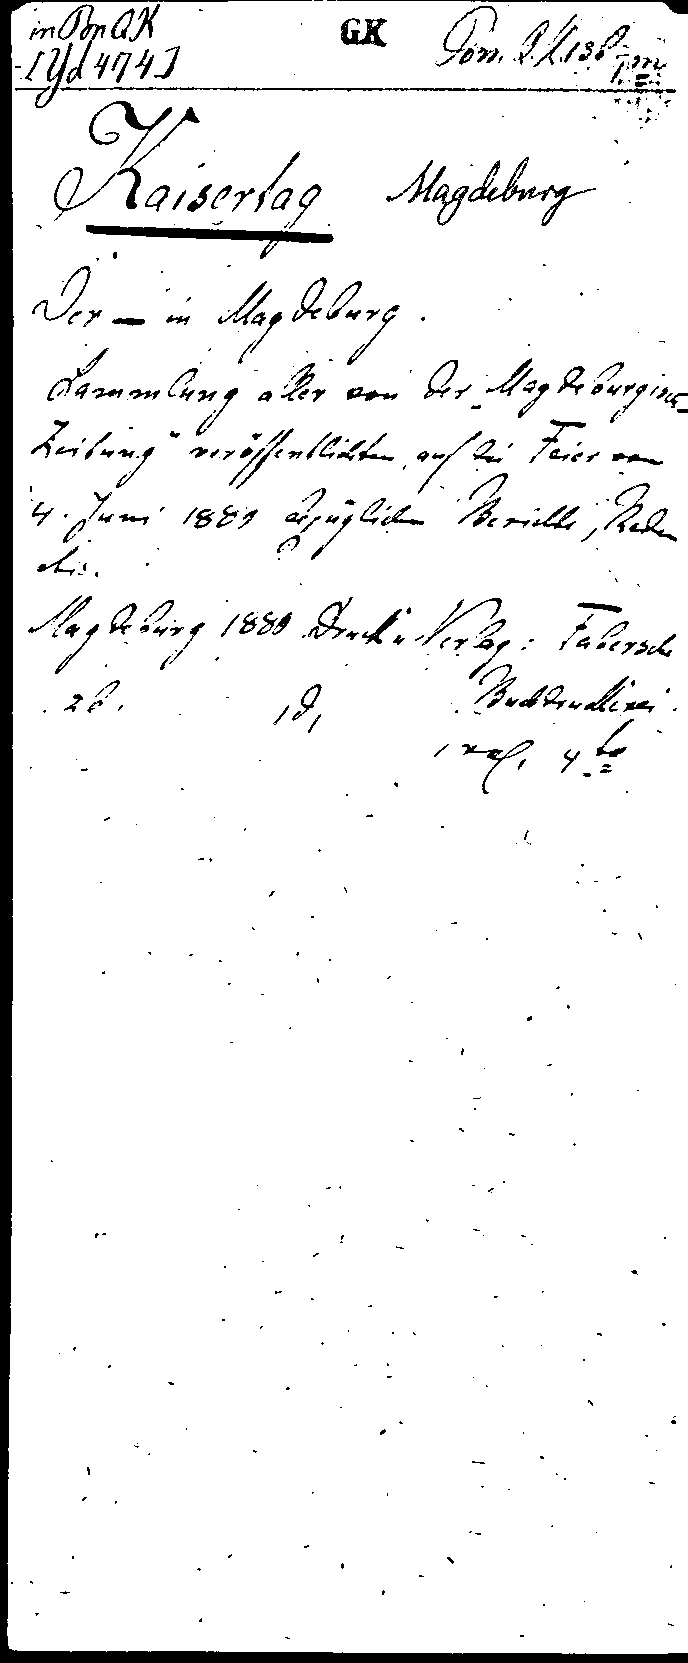 in Pon Q K
GK
[Yd 4743]
Kaisertag Magdeburg
Der — in Magdeburg.
Sammlung aller von der „Magdeburgischen
Zeitung" veröffentlichten, auf die Feier vom
4. Juni 1889 bezüglichen Berichte, Reden
etc.
Magdeburg 1889 Druck u Verlag: Fabersche
26. Buchdruckerei.
4to